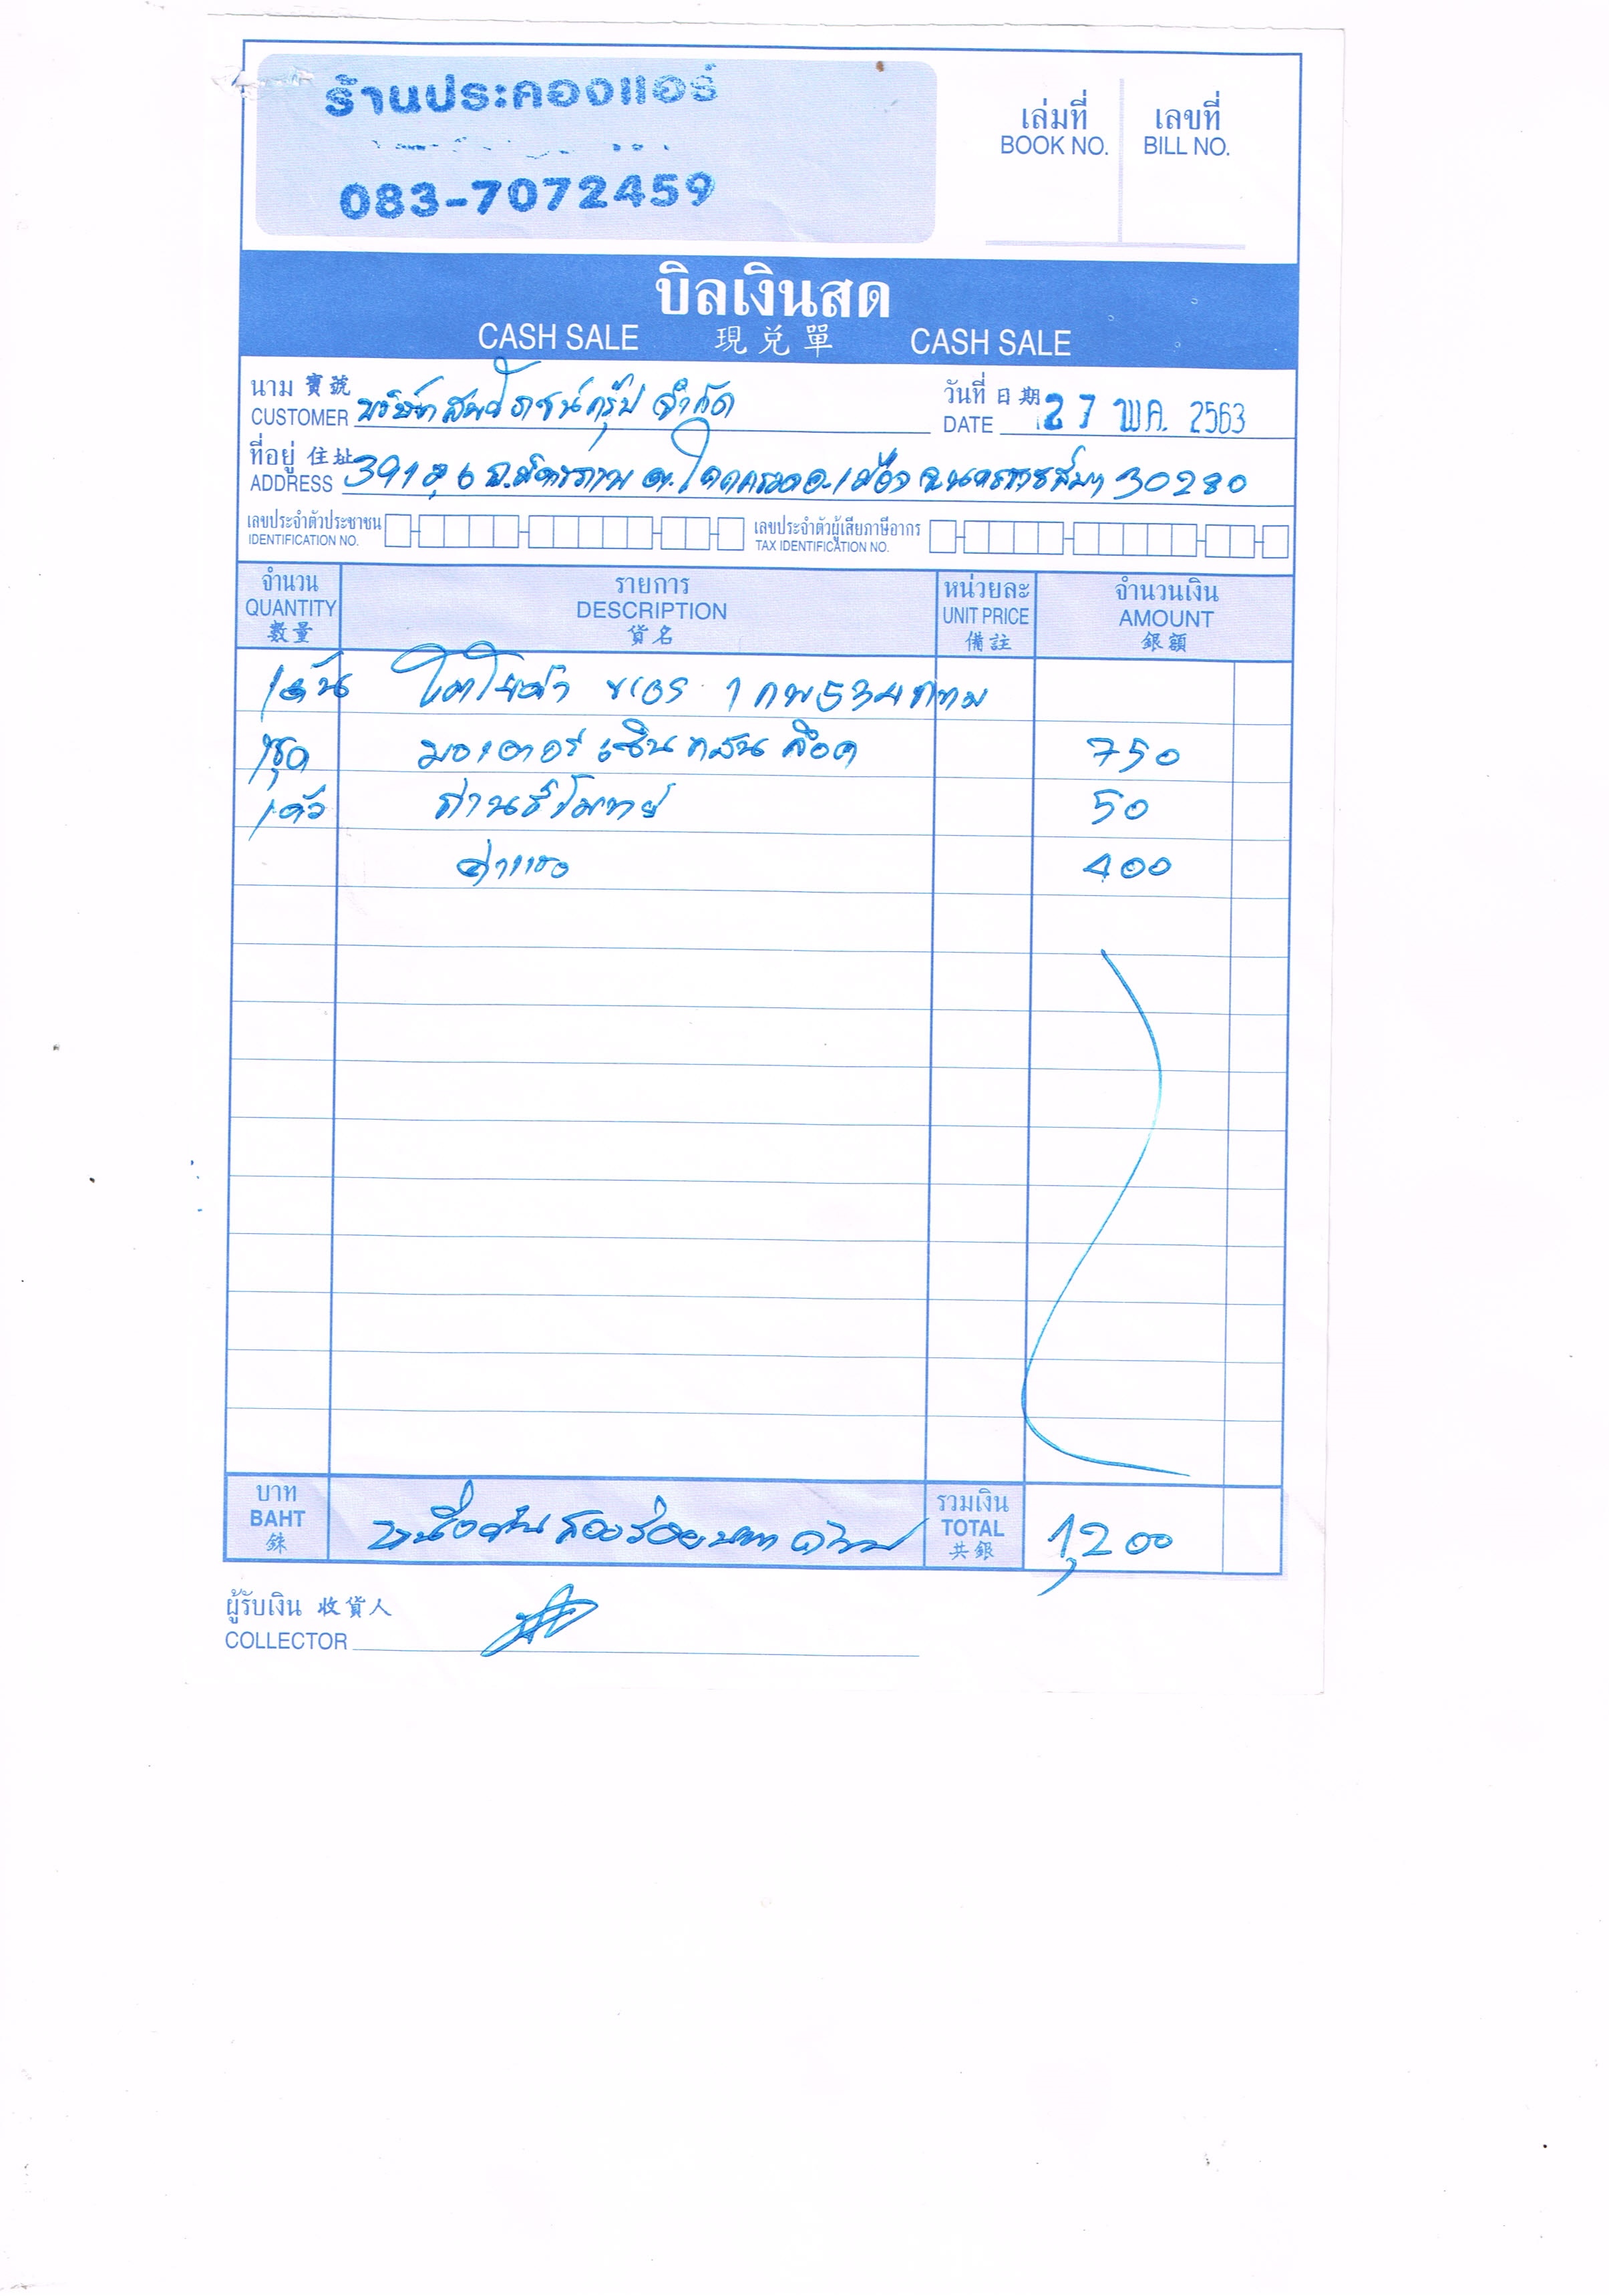 ร้านประคองแอร์
083-7072459
เล่มที่ เลขที่
BOOK NO. BILL NO.
บิลเงินสด
CASH SALE 現兌單 CASH SALE
นาม 寶號 วันที่ 日期
CUSTOMER บริษัท กรุ๊ป จำกัด DATE 27 พ.ค. 2563
ที่อยู่ 住址
ADDRESS 391 ม.6 ถ.มิตรภาพ ต.โคกกรวด อ.เมือง จ.นครราชสีมา 30280
เลขประจำตัวประชาชน เลขประจำตัวผู้เสียภาษีอากร
IDENTIFICATION NO. TAX IDENTIFICATION NO.
จำนวน รายการ หน่วยละ จำนวนเงิน
QUANTITY DESCRIPTION UNIT PRICE AMOUNT
數量 貨名 備註 銀額
1คัน โตโยต้า 1 กพ 534 กทม
1ชุด มอเตอร์ เซ็นทรัลล็อค 750
1ตัว ถ่านรีโมทย์ 50
ค่าแรง 400
บาท รวมเงิน
BAHT หนึ่งพันสองร้อยบาทถ้วน TOTAL 1,200
銖 共銀
ผู้รับเงิน 收貨人
COLLECTOR